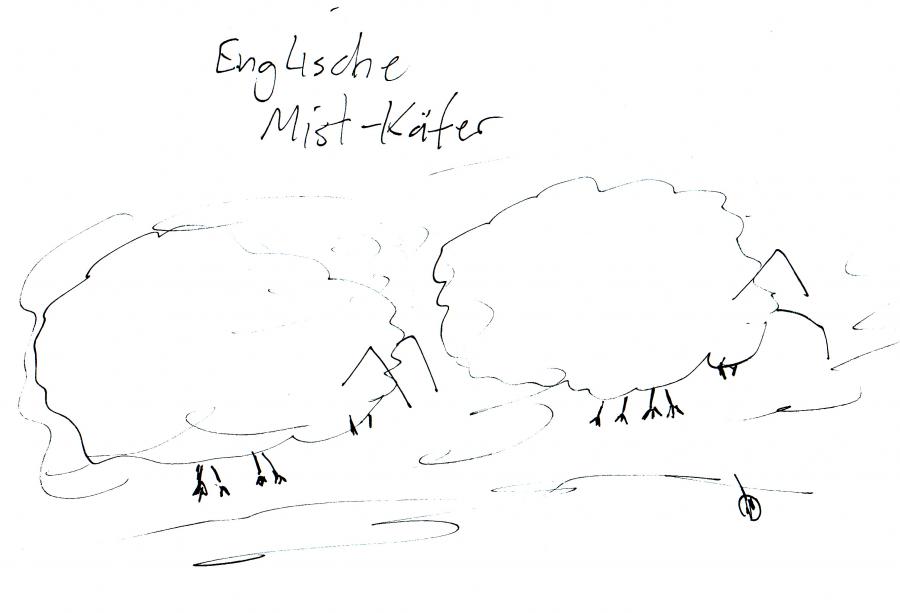 Englische
Mist-Käfer